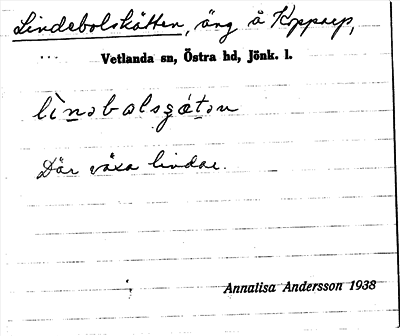 Lindebolskötten, äng å Kopparp,
... Vetlanda sn, Östra hd, Jönk. l.
Där växa lindar.
Annalisa Andersson 1938